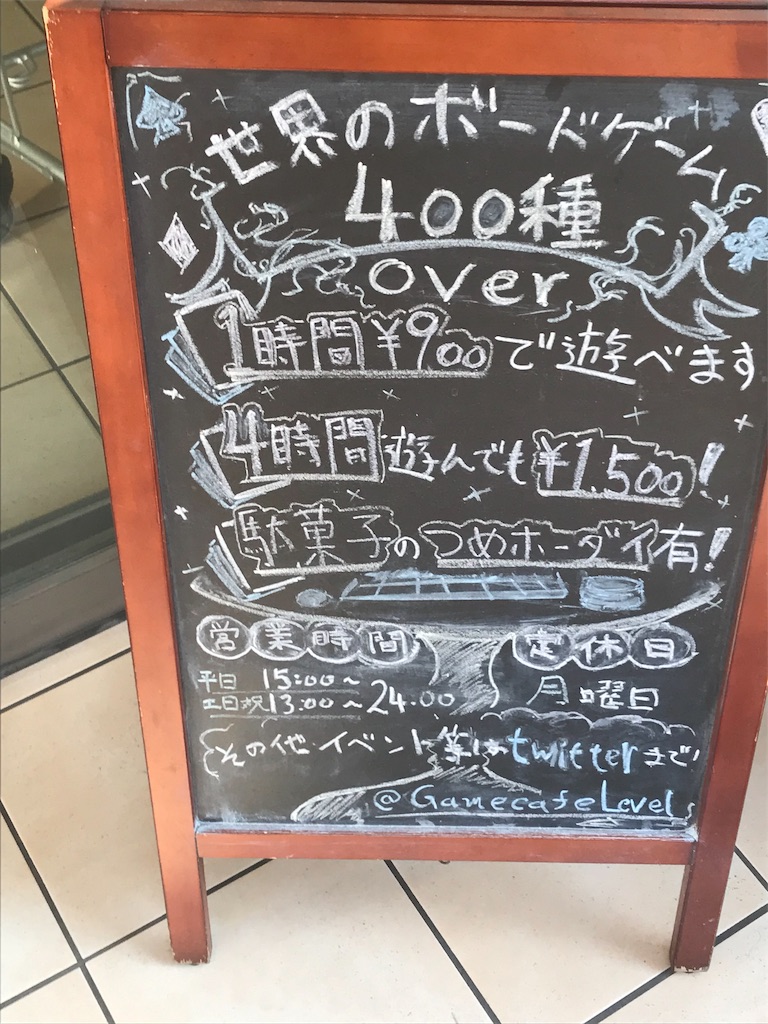 世界のボードゲーム
400種
over
1時間¥900で遊べます
4時間遊んでも¥1.500!
駄菓子のつめホーダイ有!
営業時間 定休日
平日 15:00~
土日祝13:00~24.00 月曜日
その他・イベント等はtwitterまで!
@GamecafeLevel